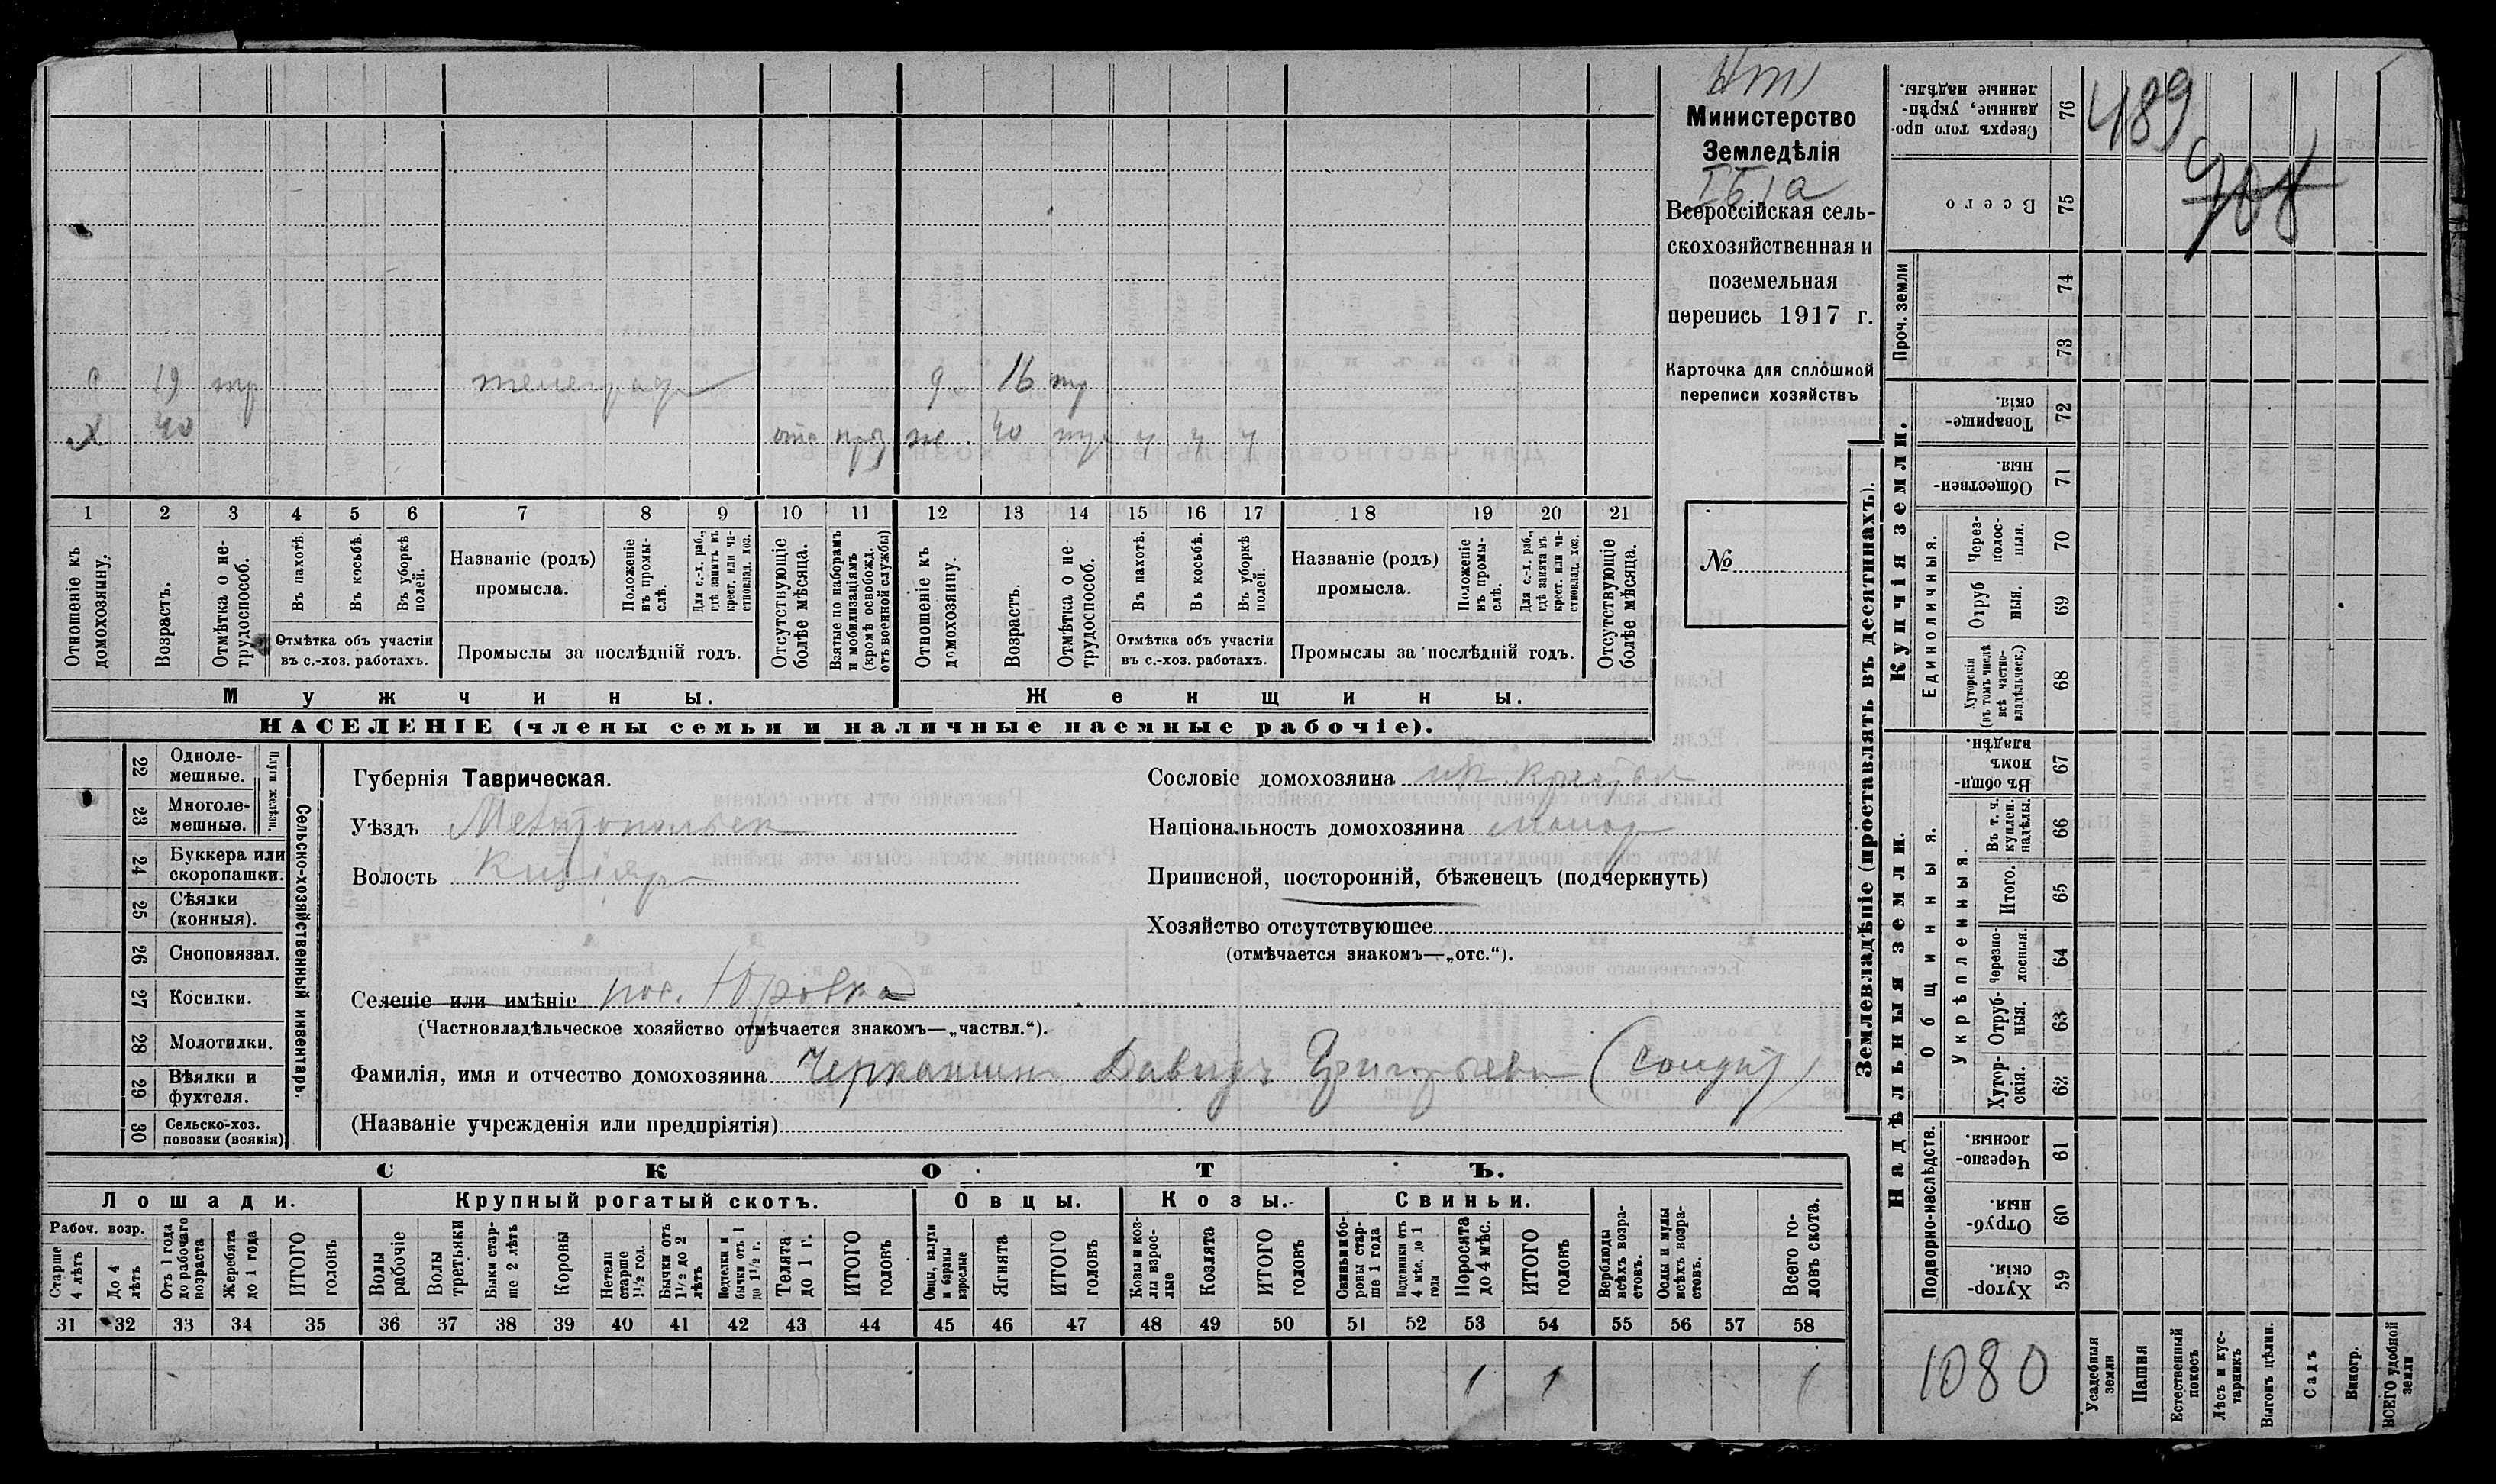 Министерство
Земледѣлія
Всероссійская сель-
скохозяйственная и
поземельная
перепись 1917 г.
Карточка для сплошной
переписи хозяйствъ
№
с 19 тр телеграф 9 16 тр
х 40 ж. 40
1 2 3 4 5 6 7 8 9 10 11 12 13 14 15 16 17 18 19 20 21
Отношеніе къ домохозяину.
Возрастъ.
Отмѣтка о не-трудоспособ.
Въ пахотѣ.
Въ косьбѣ.
Въ уборкѣ полей.
Отмѣтка объ участіи
въ с.-хоз. работахъ.
Названіе (родъ)
промысла.
Положеніе въ промы-слѣ.
Для с.-х. раб., гдѣ занятъ въ крест. или ча-стновлад. хоз.
Промыслы за послѣдній годъ.
Отсутствующіе болѣе мѣсяца.
Взятые по наборамъ и мобилизаціямъ (кромѣ освобожд. отъ военной службы)
Отношеніе къ домохозяину.
Возрастъ.
Отмѣтка о не трудоспособ.
Въ пахотѣ.
Въ косьбѣ.
Въ уборкѣ полей.
Отмѣтка объ участіи
въ с.-хоз. работахъ.
Названіе (родъ)
промысла.
Положеніе въ промы-слѣ.
Для с.-х. раб., гдѣ занятъ въ крест. или ча-стновлад. хоз.
Промыслы за послѣдній годъ.
Отсутствующіе болѣе мѣсяца.
Мужчины.
Женщины.
НАСЕЛЕНІЕ (члены семьи и наличные наемные рабочіе).
22 Одноле-мешные.
23 Многоле-мешные.
Плуги желѣзн.
24 Буккера или скоропашки.
25 Сѣялки (конныя).
26 Сноповязал.
27 Косилки.
28 Молотилки.
29 Вѣялки и фухтеля.
30 Сельско-хоз. повозки (всякія)
Сельско-хозяйственный инвентарь.
Губернія Таврическая.
Уѣздъ Мелитопольск
Волость Кизіяр
Селеніе или имѣніе пос. Юровка
(Частновладѣльческое хозяйство отмѣчается знакомъ—„частвл.“).
Фамилія, имя и отчество домохозяина Давидъ Григорьевъ
(Названіе учрежденія или предпріятія)
Сословіе домохозяина
Національность домохозяина
Приписной, посторонній, бѣженецъ (подчеркнуть)
Хозяйство отсутствующее
(отмѣчается знакомъ—„отс.“).
СКОТЪ.
Лошади. Крупный рогатый скотъ. Овцы. Козы. Свиньи.
Рабоч. возр.
Старше 4 лѣтъ
До 4 лѣтъ
Отъ 1 года до рабочаго возраста
Жеребята до 1 года
ИТОГО головъ
Волы рабочіе
Волы третьяки
Быки стар-ше 2 лѣтъ
Коровы
Нетели старше 1½ год.
Бычки отъ 1½ до 2 лѣтъ
Подтелки и бычки отъ 1 до 1½ г.
Телята до 1 г.
ИТОГО головъ
Овцы, валухи и бараны взрослые
Ягнята
ИТОГО головъ
Козы и коз-лы взрос-лые
Козлята
ИТОГО головъ
Свиньи и бо-ровы стар-ше 1 года
Подсвинки отъ 4 мѣс. до 1 года
Поросята до 4 мѣс.
ИТОГО головъ
Верблюды всѣхъ возра-стовъ.
Ослы и мулы всѣхъ возра-стовъ.
Всего го-ловъ скота.
31 32 33 34 35 36 37 38 39 40 41 42 43 44 45 46 47 48 49 50 51 52 53 54 55 56 57 58
1 1 1
Землевладѣніе (проставлять въ десятинахъ).
76 Сверхъ того про-данные, укрѣп-ленные надѣлы.
489
908
75 Всего
Проч. земли
74
73
Купчія земли.
72 Товарище-скія.
71 Обществен-ныя.
Единоличныя.
70 Через-полос-ныя.
69 Отруб ныя.
68 Хуторскія (въ томъ числѣ всѣ частно-владѣльческ.)
Надѣльныя земли.
67 Въ общи номъ владѣн.
Общинныя.
Укрѣпленныя.
66 Въ т. ч. куплен. надѣлы.
65 Итого.
64 Черезпо-лосныя.
63 Отруб-ныя.
62 Хутор-скія.
Подворно-наслѣдств.
61 Черезпо-лосныя.
60 Отруб-ныя.
59 Хутор-скія.
1080
Усадебныя земли
Пашня
Естественный покосъ
Лѣсъ и кус-тарникъ
Выгонъ цѣлин.
Садъ
Виногр.
ВСЕГО удобной земли